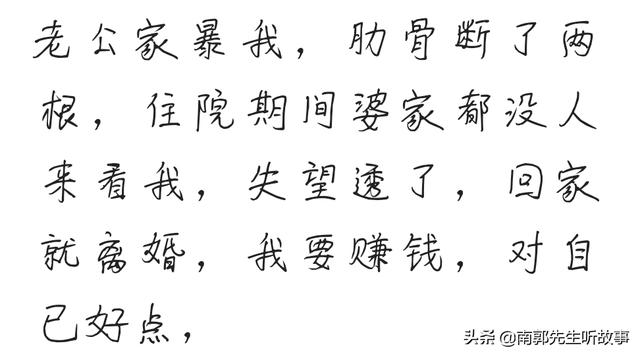 老公家暴我，肋骨断了两
根，住院期间婆家都没人
来看我，失望透了，回家
就离婚，我要赚钱，对自
已好点，
头条@南郭先生听故事